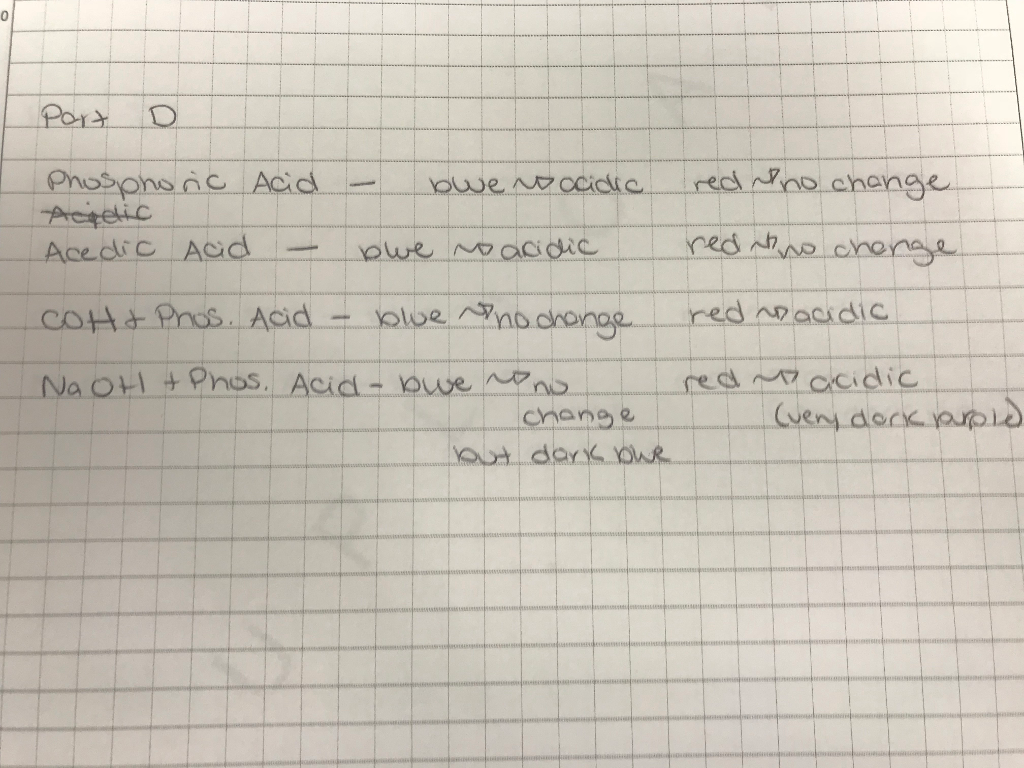 Part D
Phosphoric Acid — blue ⇝ acidic red ⇝ no change
Acidic
Acedic Acid — blue ⇝ acidic red ⇝ no change
COH + Phos. Acid - blue ⇝ no change red ⇝ acidic
NaOH + Phos. Acid - blue ⇝ no red ⇝ acidic
change (very dark purple)
but dark blue